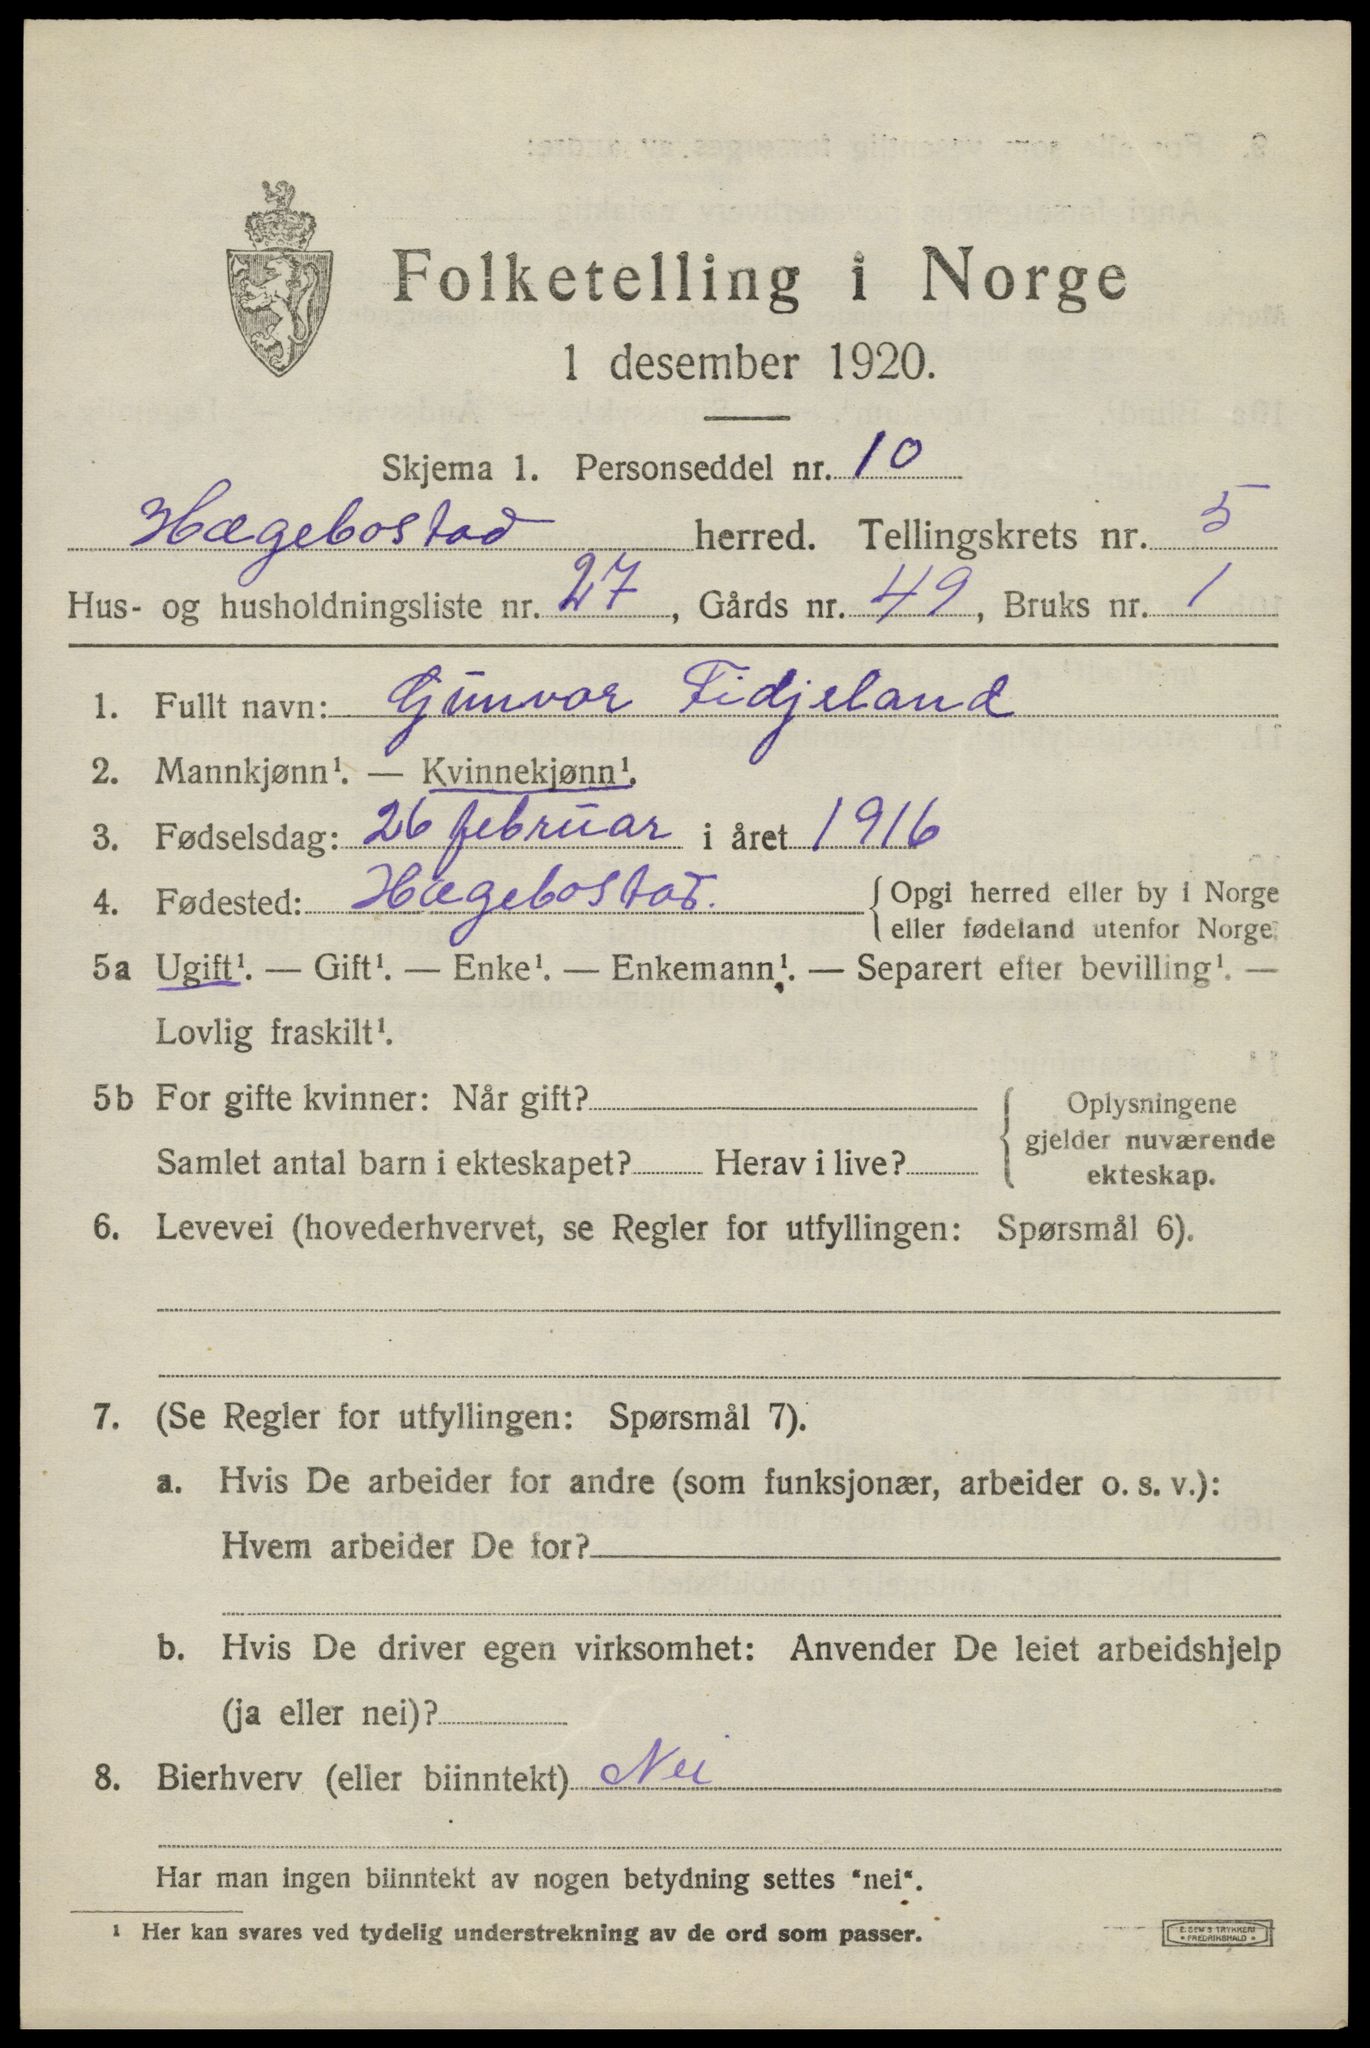 Folketelling i Norge
1 desember 1920.
Skjema 1. Personseddel nr. 10
Hægebostad herred. Tellingskrets nr. 5
Hus- og husholdningsliste nr. 27, Gårds nr. 49, Bruks nr. 1
1. Fullt navn: Gunvor Fidjeland
2. Mannkjønn¹. — Kvinnekjønn¹.
3. Fødselsdag: 26 februar i året 1916
4. Fødested: Hægebostad. { Opgi herred eller by i Norge
eller fødeland utenfor Norge.
5a Ugift¹. — Gift¹. — Enke¹. — Enkemann¹. — Separert efter bevilling¹. —
Lovlig fraskilt¹.
5b For gifte kvinner: Når gift? { Oplysningene
gjelder nuværende
Samlet antal barn i ekteskapet? Herav i live? ekteskap.
6. Levevei (hovederhvervet, se Regler for utfyllingen: Spørsmål 6).
7. (Se Regler for utfyllingen: Spørsmål 7).
a. Hvis De arbeider for andre (som funksjonær, arbeider o. s. v.):
Hvem arbeider De for?
b. Hvis De driver egen virksomhet: Anvender De leiet arbeidshjelp
(ja eller nei)?
8. Bierhverv (eller biinntekt) Nei
Har man ingen biinntekt av nogen betydning settes "nei".
¹ Her kan svares ved tydelig understrekning av de ord som passer.
E. SEM'S TRYKKERI
• FREDRIKSHALD •